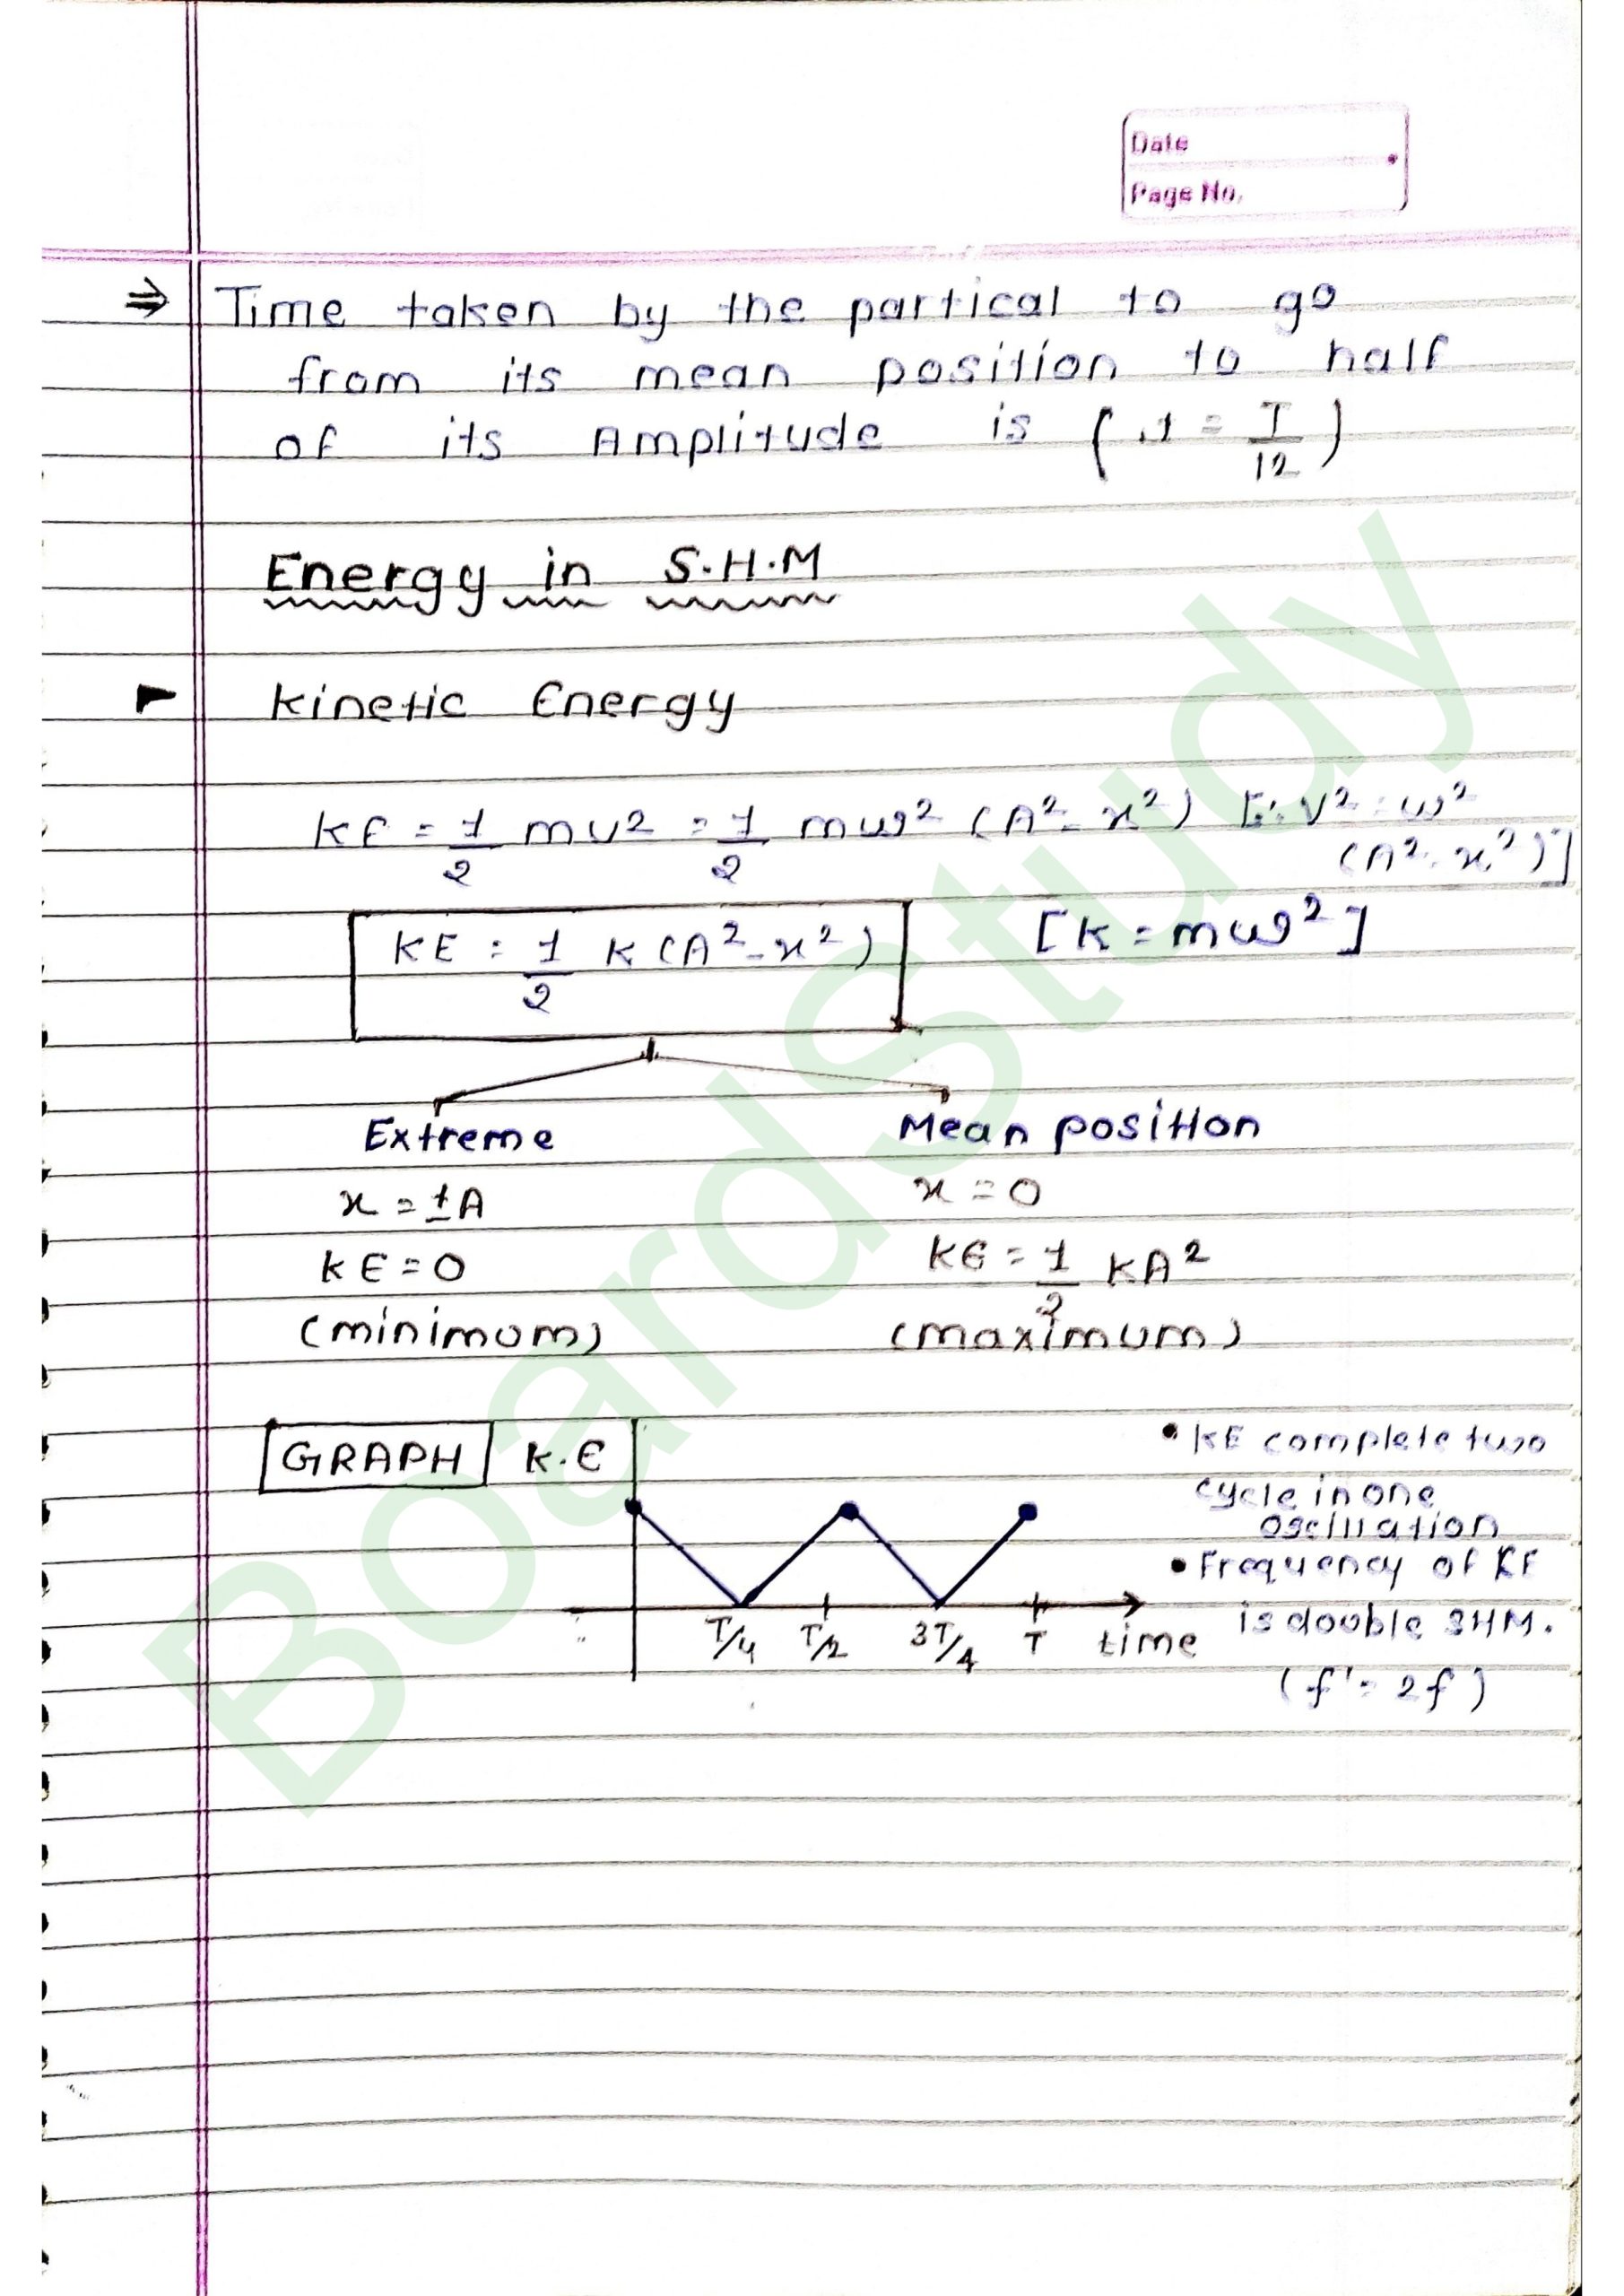 Date
Page No.
⇒ Time taken by the partical to go
from its mean position to half
of its Amplitude is ( t = T/12 )
Energy in S.H.M
► Kinetic Energy
KE = 1/2 mv2 = 1/2 mω2 (A2 - x2) [∵ V2 = ω2
(A2 - x2)]
KE = 1/2 K (A2 - x2) [K = mω2]
Extreme Mean position
x = ±A x = 0
KE = 0 KE = 1/2 KA2
(minimum) (maximum)
GRAPH K.E
• KE complete two
cycle in one
oscillation
• Frequency of KE
is double SHM.
(f' = 2f)
T/4 T/2 3T/4 T time
BoardStudy